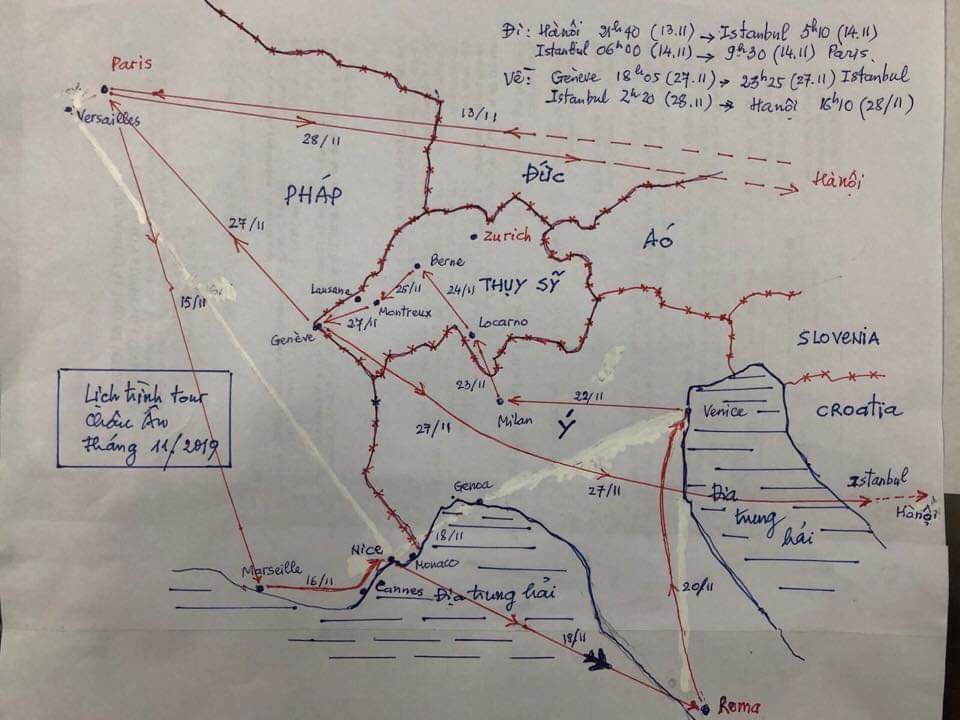 Đi: Hànôi 21h40 (13.11) → Istanbul 5h10 (14.11)
Istanbul 06h00 (14.11) → 9h30 (14.11) Paris.
Về: Genève 18h05 (27.11) → 23h25 (27.11) Istanbul
Istanbul 2h20 (28.11) → Hanôi 16h10 (28/11)
Paris
Versailles
13/11
28/11
ĐỨC
Hànôi
PHÁP
27/11
Zurich
AÓ
Berne
15/11
Lausane
25/11
24/11
THỤY SỸ
Montreux
27/11
Genève
Locarno
SLOVENIA
Lịch trình tour
Châu Âu
tháng 11/2019
23/11
22/11
Milan
Venice
CROATIA
27/11
Ý
Genoa
27/11
Istanbul
Hànội
Địa
trung
hải
18/11
Nice
Monaco
Marseille
16/11
Cannes
Địa trung hải
20/11
18/11
Roma